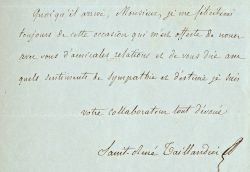 Quoiqu'il arrive, Monsieur, je me féliciterai
toujours de cette occasion qui m'est offerte de nouer
avec vous d'amicales relations et de vous dire avec
quels sentiments de sympathie et d'estime je suis
votre collaborateur tout dévoué
Saint-René Taillandier